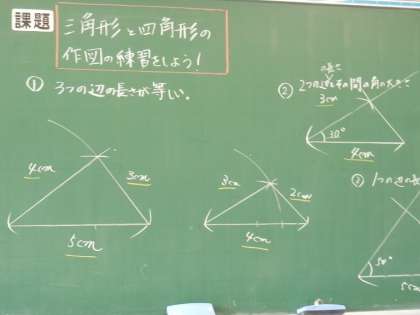 課題
三角形と四角形の
作図の練習をしよう!
① 3つの辺の長さが等しい。
4cm
3cm
5cm
3cm
2cm
4cm
の長さ
② 2つの辺とその間の角の大きさ
3cm
30°
4cm
③ 1つの辺の長
50°
5cm